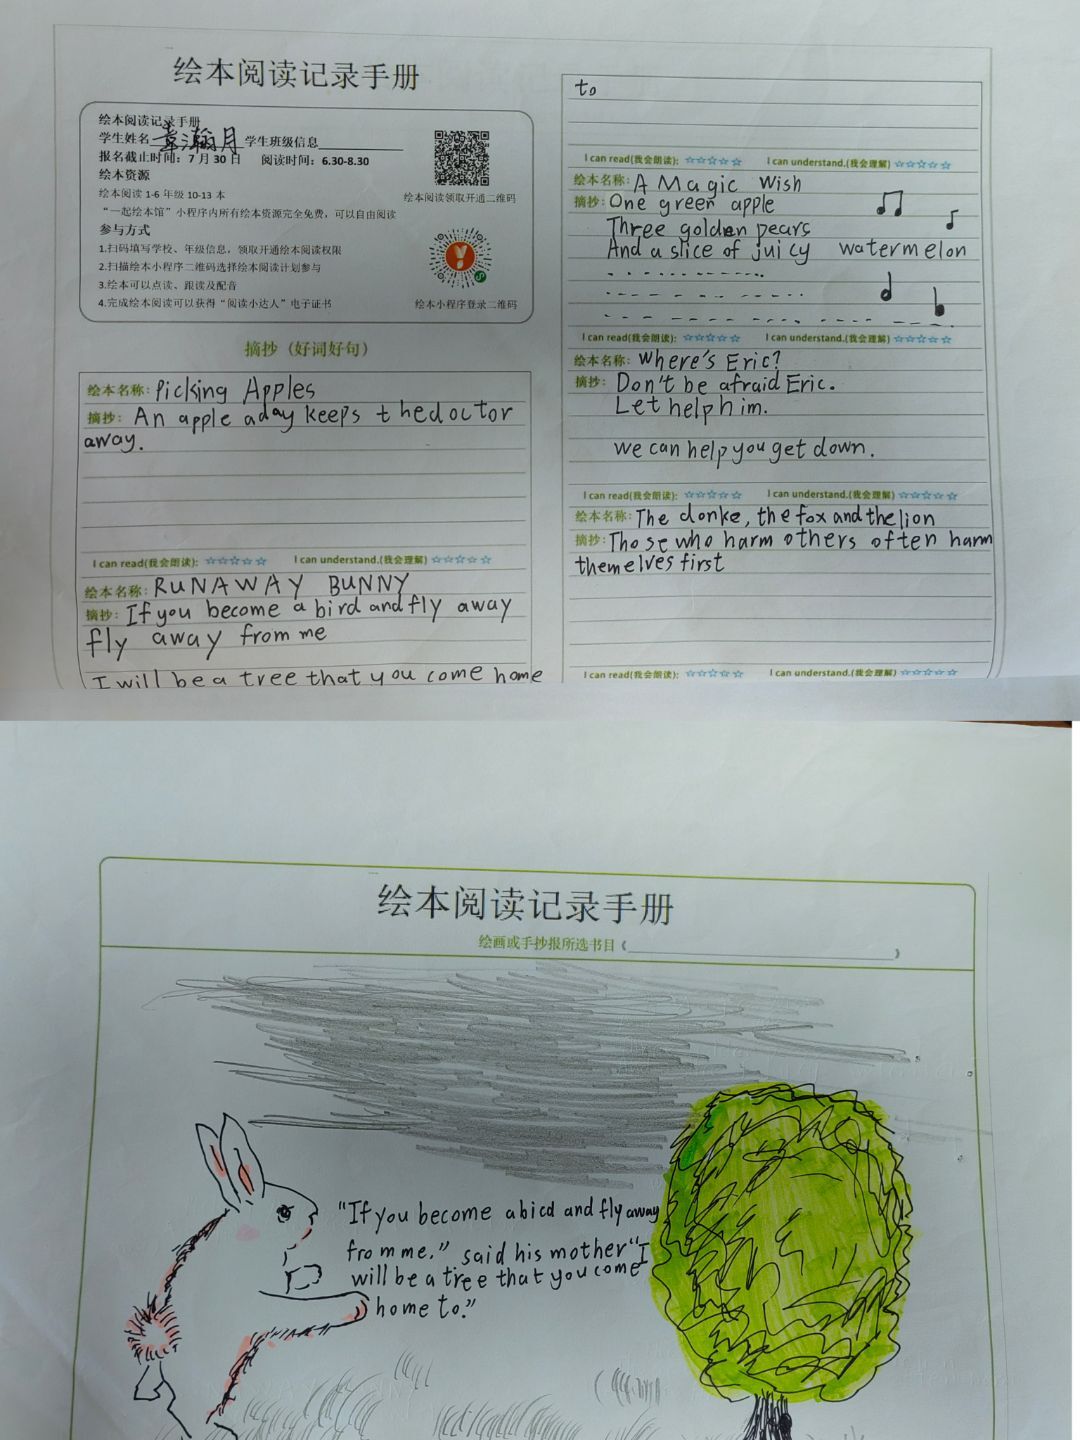 绘本阅读记录手册
绘本阅读记录手册
学生姓名 章瀚月 学生班级信息
报名截止时间：7 月 30 日 阅读时间：6.30-8.30
绘本资源
绘本阅读 1-6 年级 10-13 本
“一起绘本馆”小程序内所有绘本资源完全免费，可以自由阅读
参与方式
1.扫码填写学校、年级信息，领取开通绘本阅读权限
2.扫描绘本小程序二维码选择绘本阅读计划参与
3.绘本可以点读、跟读及配音
4.完成绘本阅读可以获得“阅读小达人”电子证书
绘本阅读领取开通二维码
绘本小程序登录二维码
摘抄（好词好句）
绘本名称: Picking Apples
摘抄: An apple a day keeps the doctor
away.
I can read(我会朗读): ☆☆☆☆☆ I can understand.(我会理解) ☆☆☆☆☆
绘本名称: RUNAWAY BUNNY
摘抄: If you become a bird and fly away
fly away from me
I will be a tree that you come home
to
I can read(我会朗读): ☆☆☆☆☆ I can understand.(我会理解) ☆☆☆☆☆
绘本名称: A Magic Wish
摘抄: One green apple
Three golden pears
And a slice of juicy watermelon
I can read(我会朗读): ☆☆☆☆☆ I can understand.(我会理解) ☆☆☆☆☆
绘本名称: Where's Eric?
摘抄: Don't be afraid Eric.
Let help him.
We can help you get down.
I can read(我会朗读): ☆☆☆☆☆ I can understand.(我会理解) ☆☆☆☆☆
绘本名称: The donke, the fox and the lion
摘抄: Those who harm others often harm
themelves first
I can read(我会朗读): ☆☆☆☆☆ I can understand.(我会理解) ☆☆☆☆☆
绘本阅读记录手册
绘画或手抄报所选书目《 》
"If you become a bird and fly away
from me." said his mother "I
will be a tree that you come
home to."